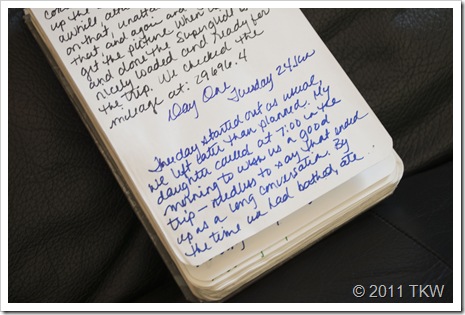 up the
awhile,
on that, unatta
that and again and
get the picture when up
and done the Superglide w
nicely loaded and ready for
the trip. We checked the
mileage at: 29696.4
Day One Tuesday 24 June
The day started out as usual,
we left later than planned. My
daughter called at 7:00 in the
morning to wish us a good
trip – needless to say that ended
up as a long conversation. By
the time we had bathed, ate...
© 2011 TKW